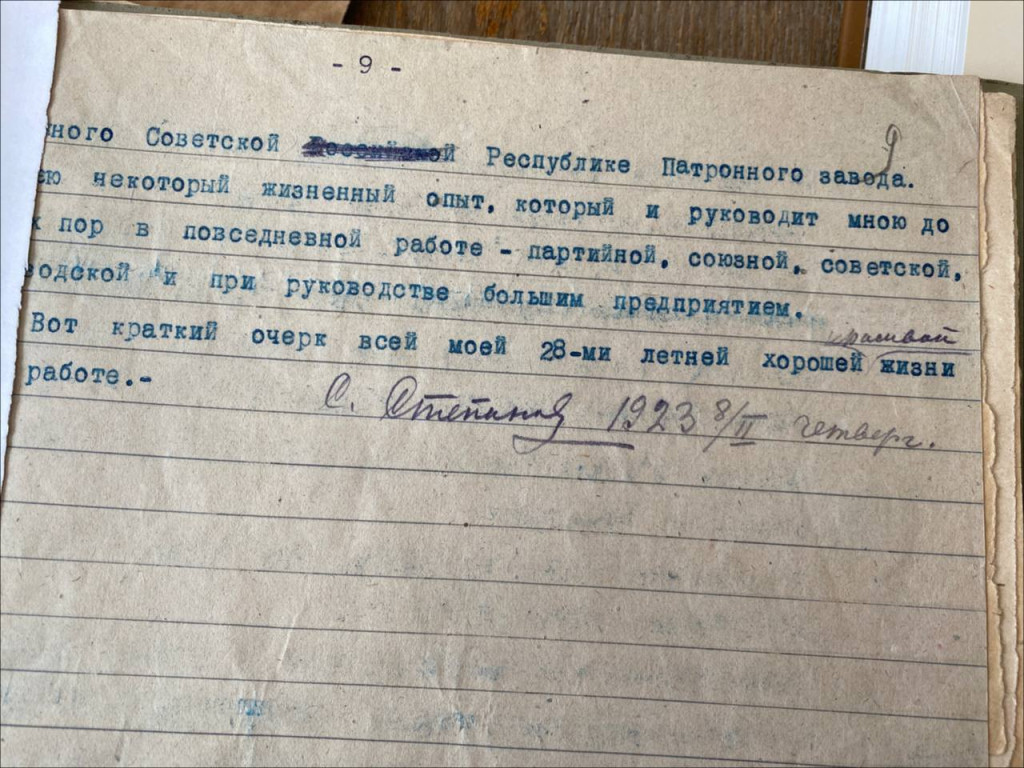 - 9 -
9
ного Советской Республике Патронного завода.
ею некоторый жизненный опыт, который и руководит мною до
х пор в повседневной работе - партийной, союзной, советской,
водской и при руководстве большим предприятием.
красивой
Вот краткий очерк всей моей 28-ми летней хорошей жизни
работе.-
С. Степанов 1923 8/II четверг.